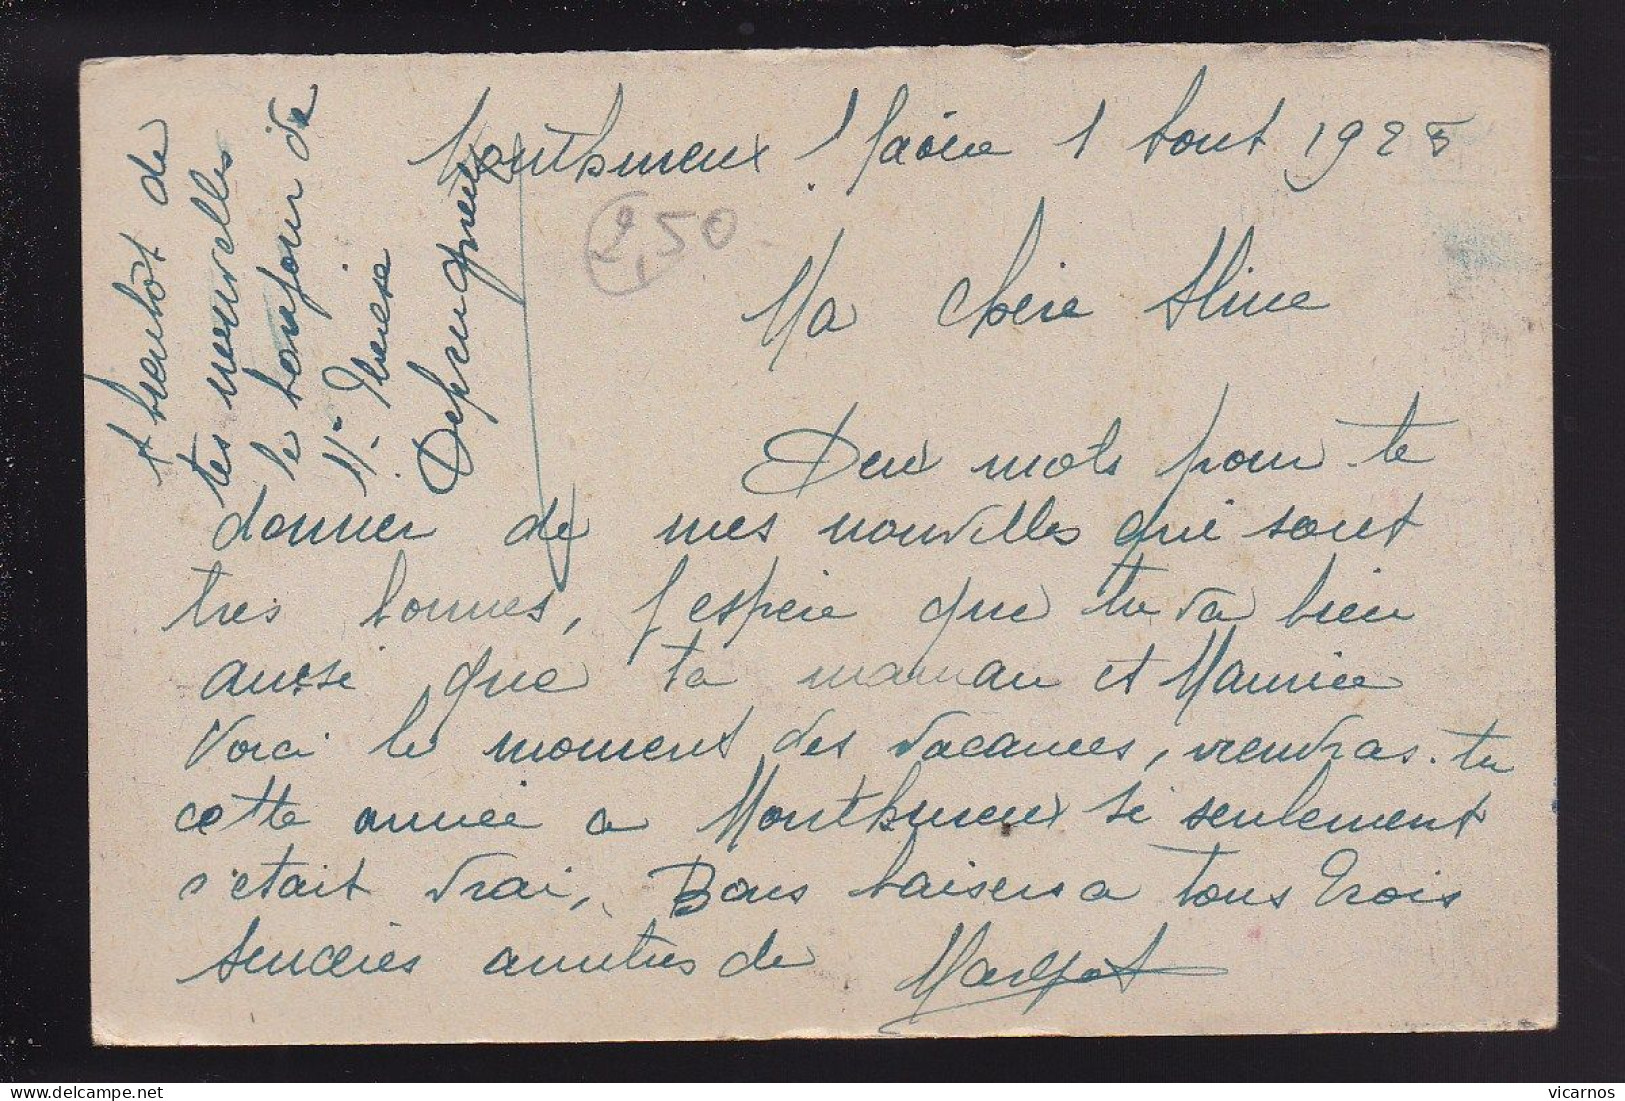 Monthumeux 1 Aout 1925
2,50
Ma chère Aline
Deux mots pour te
donner de mes nouvelles qui sont
tres bonnes, j'espère que tu va bien
aussi que ta maman et Maurice
Voici le moment des vacances, viendras-tu
cette année a Monthumeux si seulement
s'etait vrai, Bons baisers a tous trois
sinceres amities de Margot
A bientôt de
tes nouvelles
le bonjour de
Mr Therese
delcampe.net
vicarnos